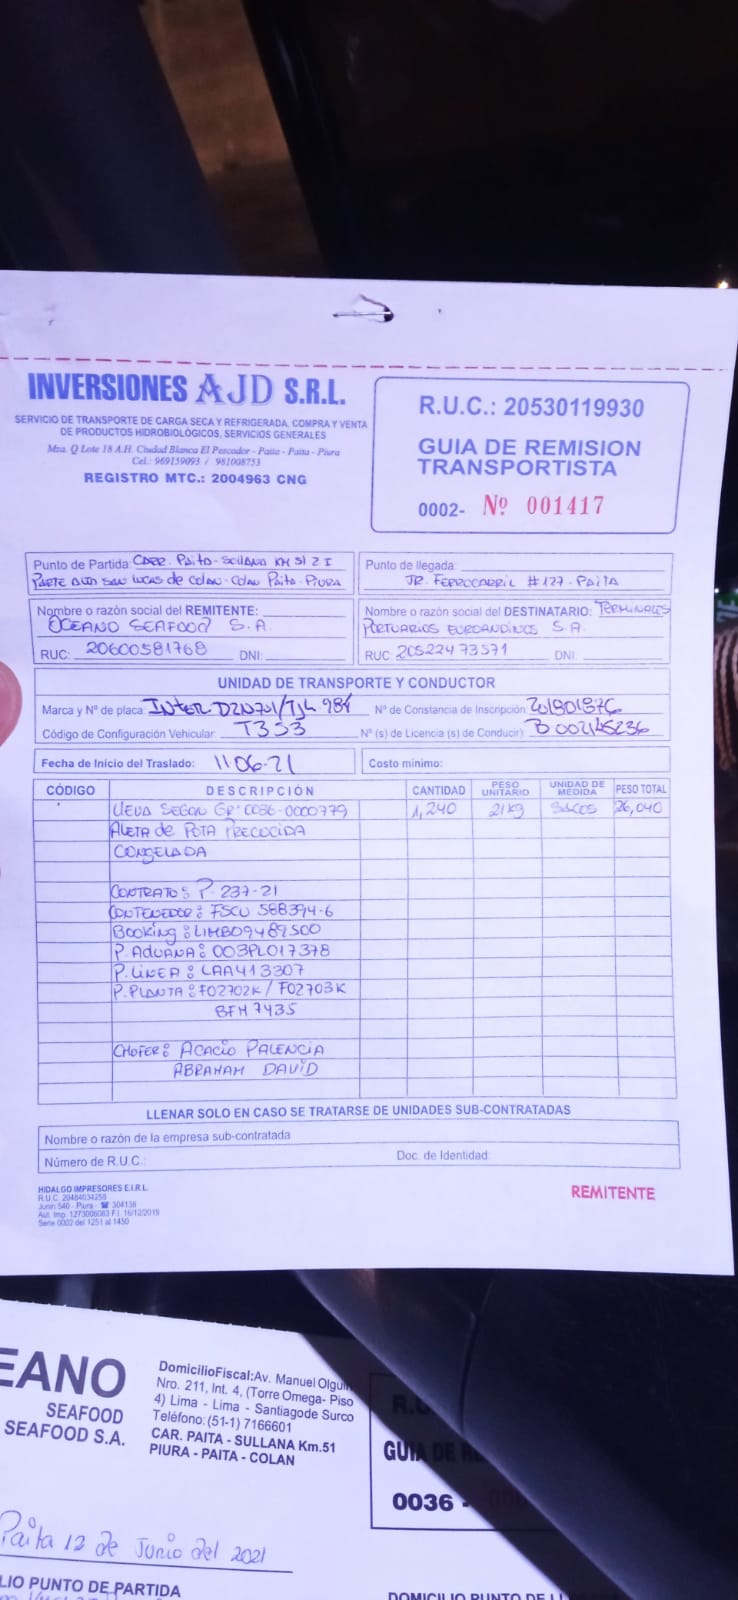 INVERSIONES AJD S.R.L.
SERVICIO DE TRANSPORTE DE CARGA SECA Y REFRIGERADA, COMPRA Y VENTA
DE PRODUCTOS HIDROBIOLÓGICOS, SERVICIOS GENERALES
Mza. Q Lote 18 A.H. Ciudad Blanca El Pescador - Paita - Paita - Piura
Cel.: 969159093 / 981008753
REGISTRO MTC.: 2004963 CNG
R.U.C.: 20530119930
GUIA DE REMISION
TRANSPORTISTA
0002- Nº 001417
Punto de Partida: CARR. PAITA-SULLANA KM 51 2 I
PARTE ALTA SAN LUCAS de COLAN-COLAN PAITA-PIURA
Punto de llegada:
JR. FERROCARRIL #127-PAITA
Nombre o razón social del REMITENTE:
OCEANO SEAFOOD S.A.
RUC: 20600581768 DNI:
Nombre o razón social del DESTINATARIO: TERMINALES
PORTUARIOS EUROANDINOS S.A.
RUC 20522473571 DNI
UNIDAD DE TRANSPORTE Y CONDUCTOR
Marca y Nº de placa: INTER. Nº de Constancia de Inscripción:
Código de Configuración Vehicular: T3S3 Nº (s) de Licencia (s) de Conducir): B002145236
Fecha de Inicio del Traslado: 11 06-21 Costo mínimo:
CÓDIGO DESCRIPCIÓN CANTIDAD PESO UNITARIO UNIDAD DE MEDIDA PESO TOTAL
LLEVA SEGUN GR: 0036-0000779 1,240 21kg SACOS 26,040
ALETA de POTA PRECOCIDA
CONGELADA
CONTRATO: P. 237-21
CONTENEDOR: FSCU 588394-6
BOOKING: LIMB09489500
P. ADUANA: 003PL017378
P. LINEA: LAA413307
P. PLANTA: F02702K / F02703K
BFH 7435
CHOFER: ACACIO PALENCIA
ABRAHAM DAVID
LLENAR SOLO EN CASO SE TRATARSE DE UNIDADES SUB-CONTRATADAS
Nombre o razón de la empresa sub-contratada
Número de R.U.C.: Doc. de Identidad:
HIDALGO IMPRESORES E.I.R.L.
R.U.C. 20484034258
Junin 540 - Piura - ☎ 304138
Aut. Imp. 1273006063 F.I. 16/12/2019
Serie 0002 del 1251 al 1450
REMITENTE
EANO
SEAFOOD
SEAFOOD S.A.
DomicilioFiscal: Av. Manuel Olguin
Nro. 211, Int. 4, (Torre Omega- Piso
4) Lima - Lima - Santiagode Surco
Teléfono: (51-1) 7166601
CAR. PAITA - SULLANA Km.51
PIURA - PAITA - COLAN
R.U
GUIA DE RE
0036 -
Paita 12 de Junio del 2021
LIO PUNTO DE PARTIDA
DOMICILIO PUNTO DE LL